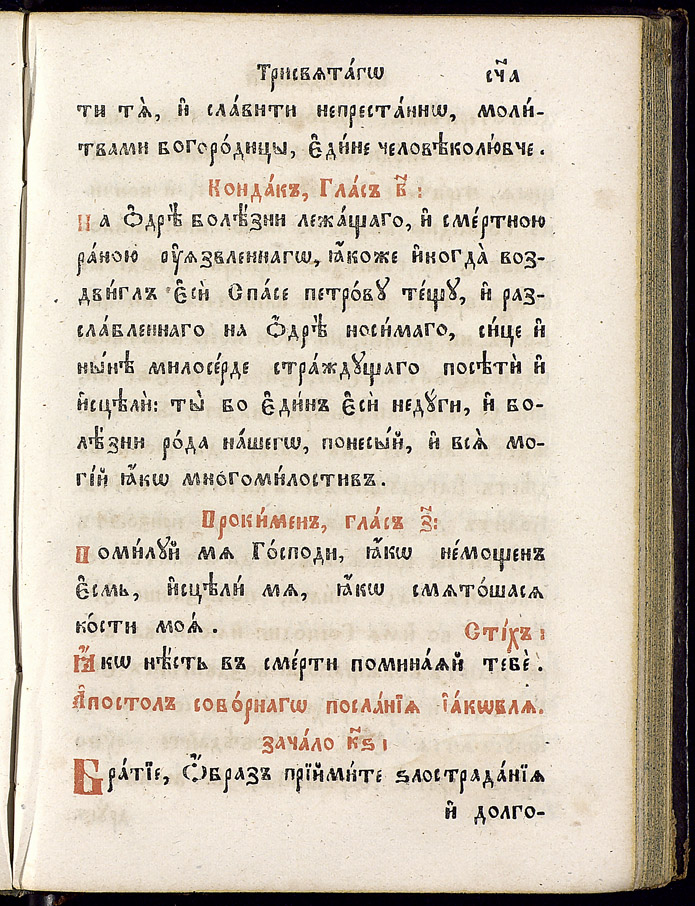 Трисвѧта́гѡ сч҃а
ти тѧ̀, и҆ сла́вити непреста́ннѡ, моли́-
твами богоро́дицы, є҆ди́не человѣколю́бче.
Конда́къ, Гла́съ в҃:
На ѻ҆дрѣ̀ болѣ́зни лежа́щаго, и҆ сме́ртною
ра́ною ᲂу҆ѧ́звленнагѡ, ꙗ҆́коже и҆ногда̀ воз-
дви́глъ є҆сѝ Спа́се петро́вꙋ те́щꙋ, и҆ раз-
сла́бленнаго на ѻ҆дрѣ̀ носи́маго, си́це и҆
ны́нѣ милосе́рде стра́ждꙋщаго посѣтѝ и҆
и҆сцѣлѝ: ты̀ бо є҆ди́нъ є҆сѝ недꙋ́ги, и҆ бо-
лѣ́зни ро́да на́шегѡ, понесы́й, и҆ всѧ̀ мо-
гі́й ꙗ҆́кѡ многоми́лостивъ.
Проки́менъ, гла́съ з҃:
Поми́лꙋй мѧ Го́споди, ꙗ҆́кѡ не́мощенъ
є҆́смь, и҆сцѣли́ мѧ, ꙗ҆́кѡ смѧто́шасѧ
кѡ́сти моѧ̑.
Сті́хъ:
Ꙗ҆́кѡ нѣ́сть въ сме́рти помина́ѧй тебѐ.
А҆постолъ собо́рнагѡ посла́нїѧ і҆а́кѡвлѧ.
зача́ло н҃ѕ:
Бра́тїе, ѻ҆́бразъ прїими́те ѕлострада́нїѧ
и҆ долго-